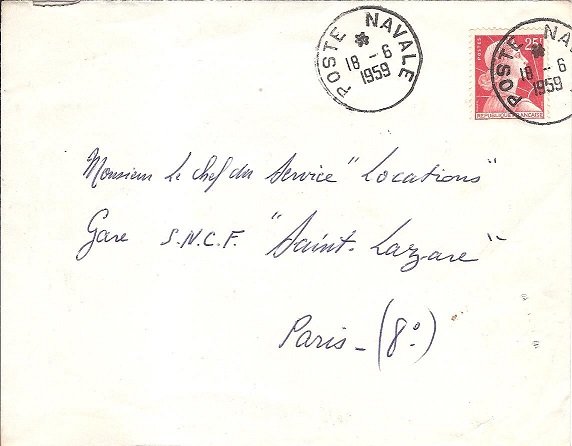 POSTE NAVALE
18 - 6
1959
POSTES
25F
REPUBLIQUE FRANCAISE
POSTE NA
18 - 6
1959
Monsieur Le Chef du Service "Locations"
Gare S.N.C.F. "Saint-Lazare"
Paris - (8°)